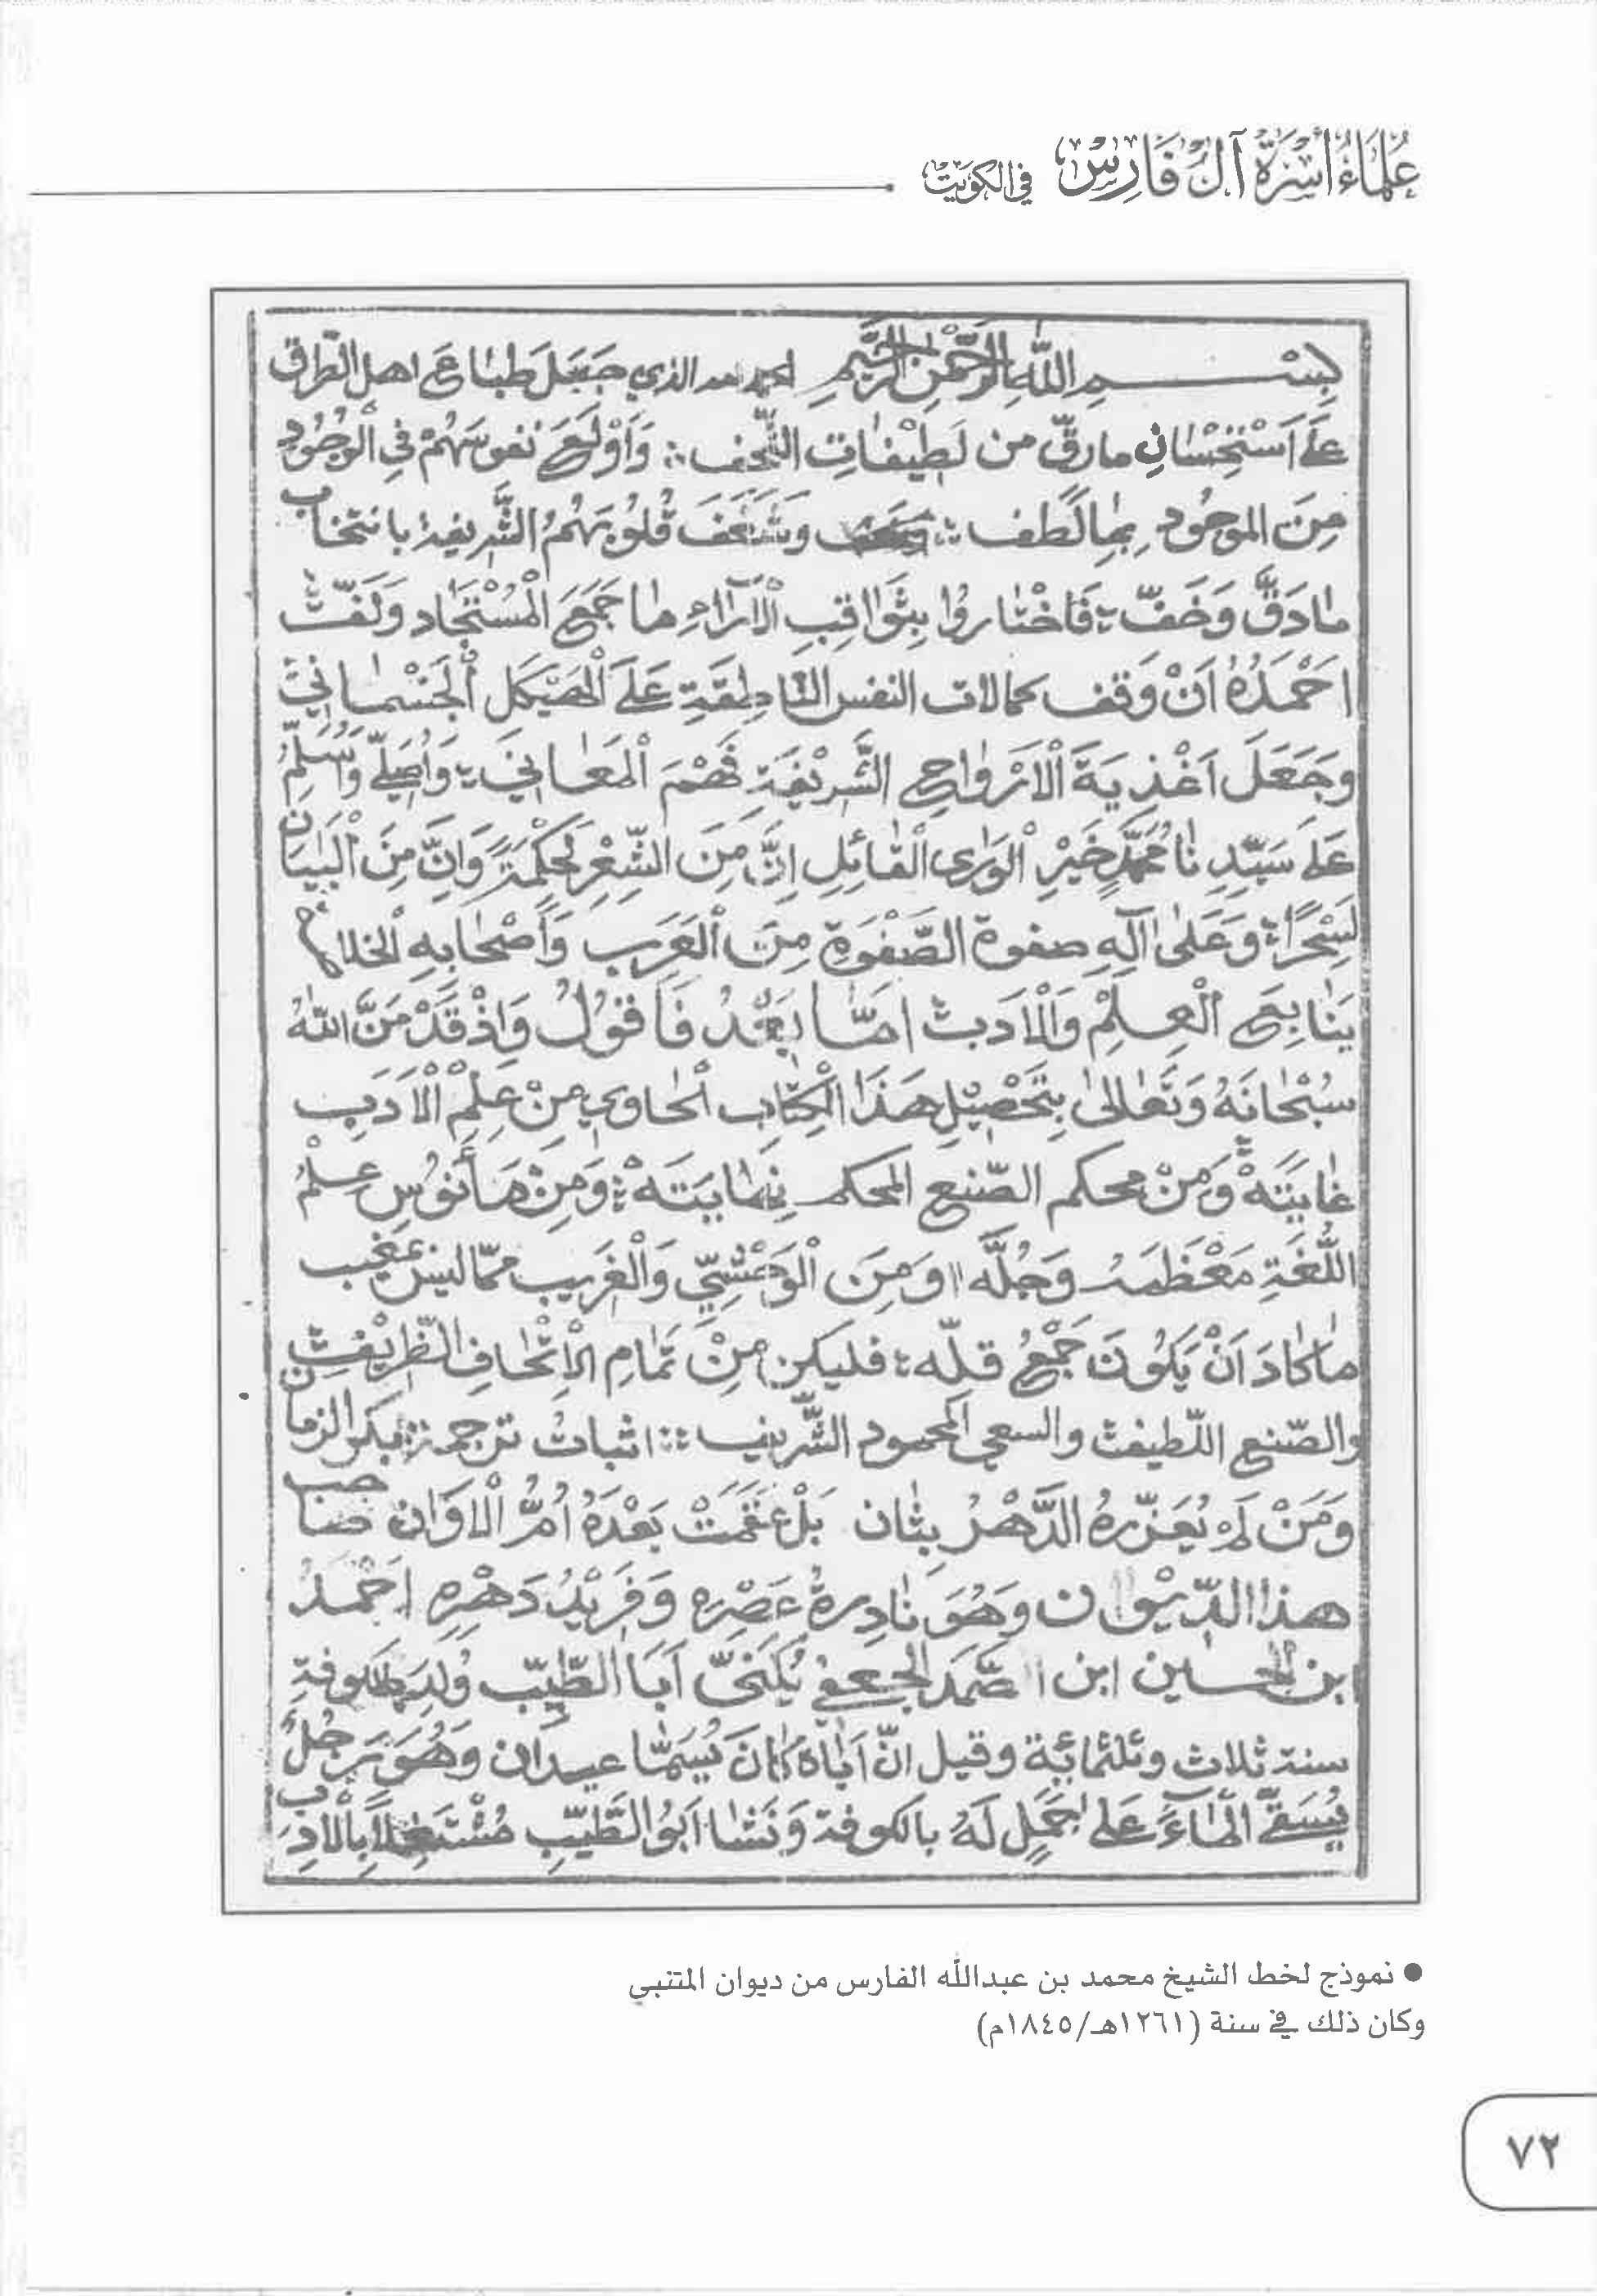 علماء أسرة آل فارس في الكويت
بسم الله الرحمن الرحيم الحمد لله الذي جبل طباع اهل الطرق
على استحسان مارق من لطيفات التحف وأولع نفوسهم في الوجود
من الموجود بما لطف وشغف قلوبهم الشريفة بانتخاب
مادق وخف فاختاروا بثواقب الآراء ما جمع المستجاد ولف
احمده أن وقف كمالات النفس الناطقة على الهيكل الجسماني
وجعل اغذية الارواح الشريفة فهم المعاني وأصلي وأسلم
على سيدنا محمد خير الورى القائل إن من الشعر لحكمة وإن من البيان
لسحرا وعلى آله صفوة الصفوة من العرب وأصحابه
ينابيع العلم والادب اما بعد فأقول وإذ قد من الله
سبحانه وتعالى بتحصيل هذا الكتاب الحاوي من علم الأدب
غايته ومن محكم الصنع المحكم نهايته ومن مأنوس علم
اللغة معظمه وجله ومن الوحشي والغريب مما ليس
ماكاد أن يكون جمع قله فليكن من تمام الاتحاف الظريف
والصنع اللطيف والسعي المحمود الشريف اثبات ترجمة بكر الزمان
ومن لم يعززه الدهر بثان بل عقمت بعده أم الاوان صاحب
هذا الديوان وهو نادرة عصره وفريد دهره احمد
ابن الحسين ابن الصمد الجعفي يكنى أبا الطيب ولد بالكوفة
سنة ثلاث وثلثمائة وقيل ان أباه كان يسما عيدان وهو رجل
يسقي الماء على جمل له بالكوفة ونشا ابو الطيب مشتغلا بالادب
● نموذج لخط الشيخ محمد بن عبدالله الفارس من ديوان المتنبي
وكان ذلك في سنة (١٢٦١هـ/١٨٤٥م)
٧٢